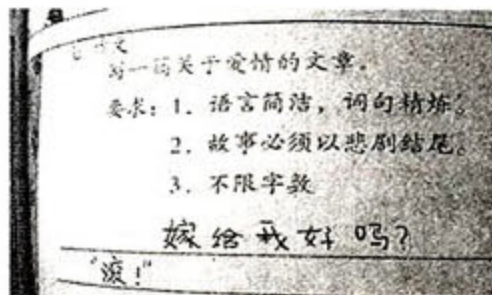 作文
写一篇关于爱情的文章。
要求：1．语言简洁，词句精炼。
2．故事必须以悲剧结尾。
3．不限字数
嫁给我好吗？
“滚！”